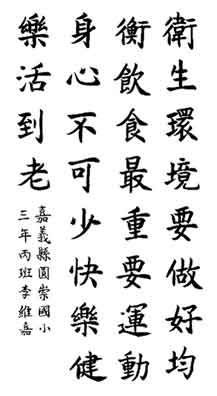 衛生環境要做好均
衡飲食最重要運動
身心不可少快樂健
樂活到老
嘉義縣圓崇國小
三年丙班李維嘉